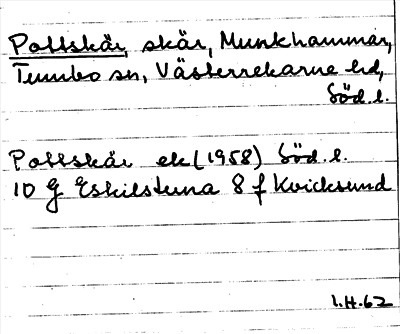 Pottskär, skär, Munkhammar,
Tumbo sn, Västerrekarne hd,
Söd. l.
Pottskär ek (1958) Söd. l.
10 g Eskilstuna 8 f Kvicksund
1.H.62